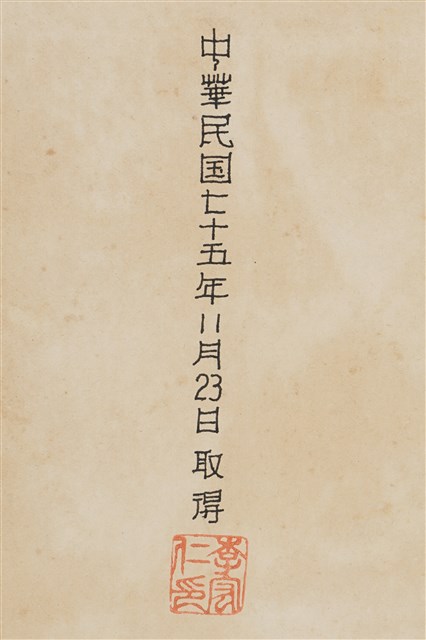 中華民国七十五年11月23日 取得
李
仁印